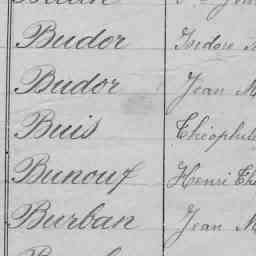 Budor Isidore
Budor Jean M
Buis Théophil
Bunouf Henri
Burban Jean M